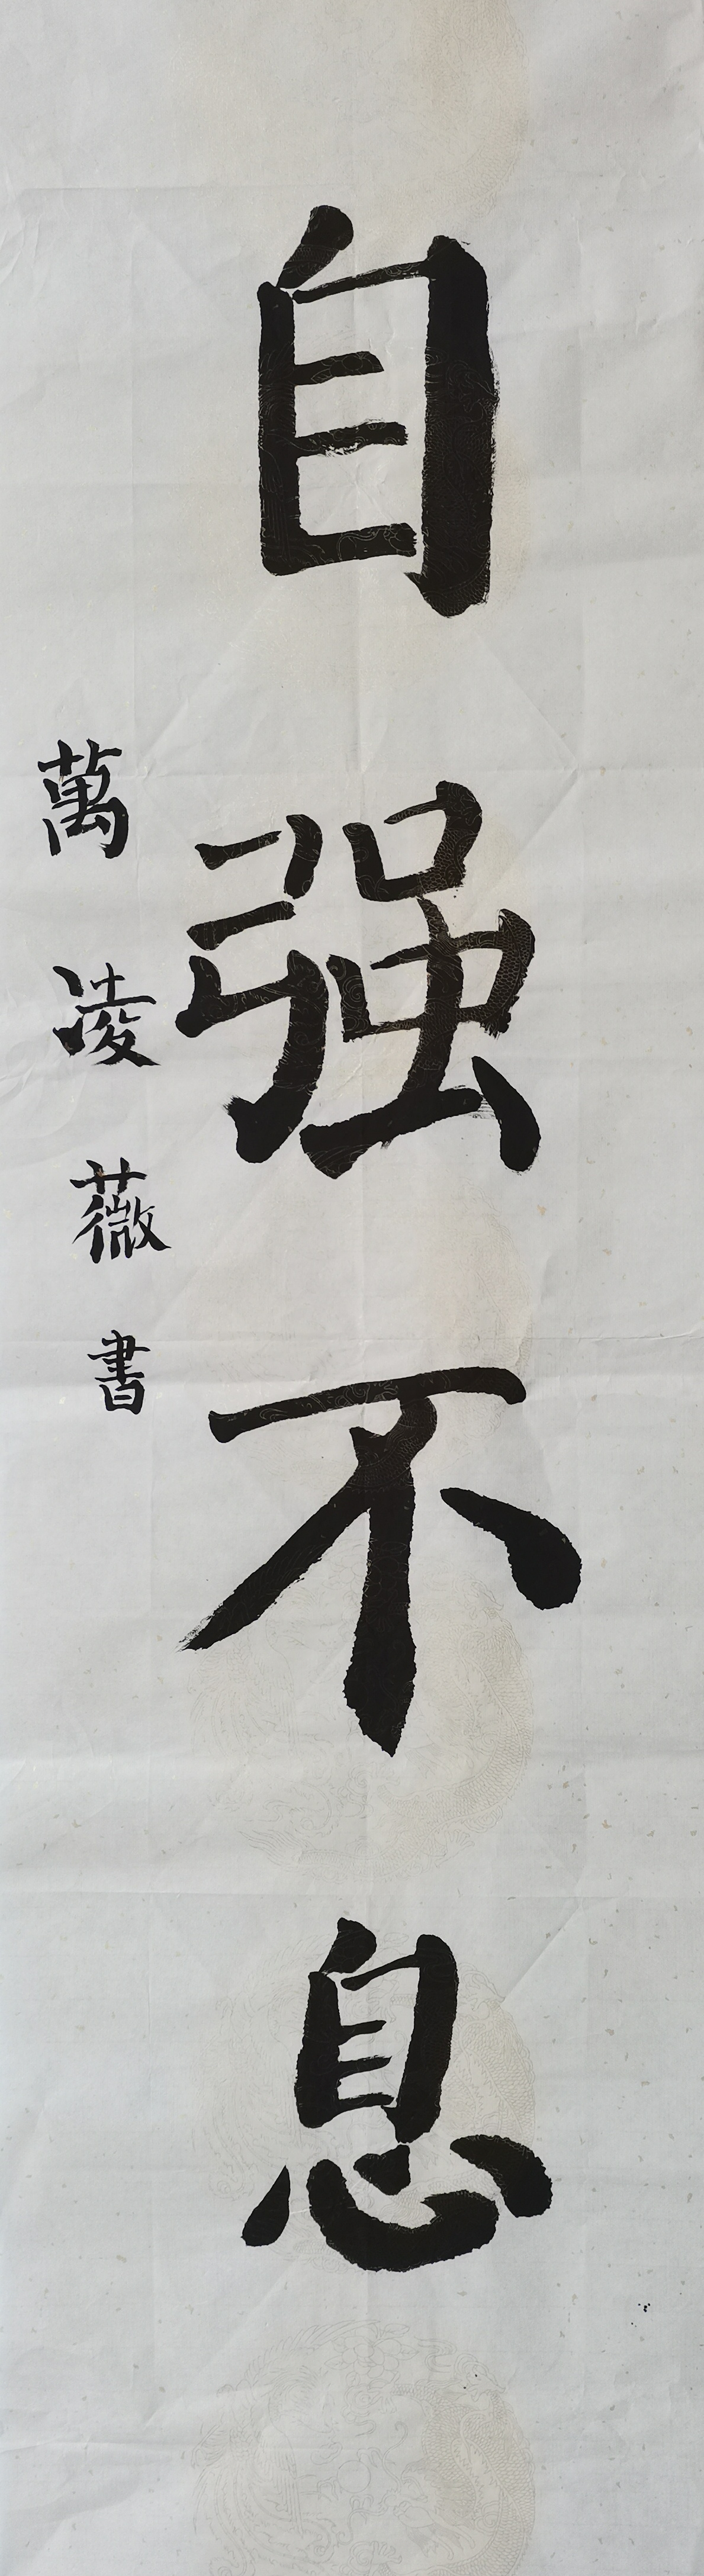 自强不息
萬凌薇書